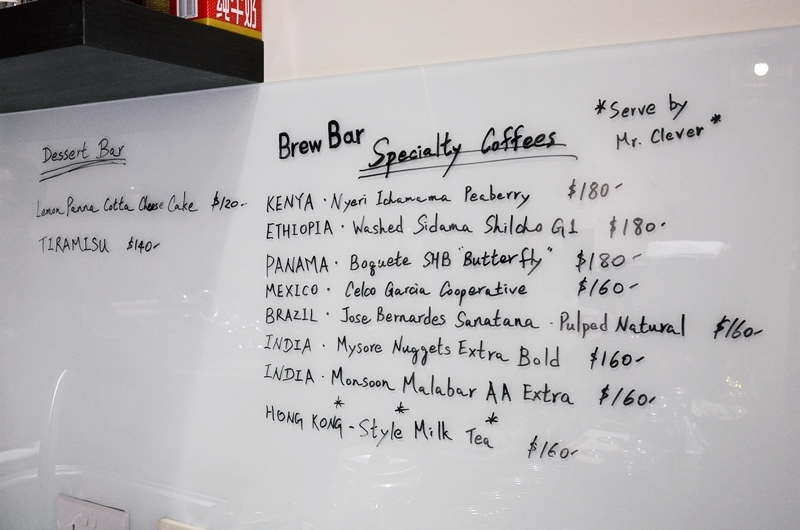 纯牛奶
Dessert Bar
Lemon Panna Cotta Cheese Cake $120-
TIRAMISU $140-
Brew Bar Specialty Coffees
*Serve by
Mr. Clever*
KENYA · Nyeri Ichamama Peaberry $180-
ETHIOPIA · Washed Sidama Shilcho G1 $180-
PANAMA · Boquete SHB "Butterfly" $180-
MEXICO · Celco Garcia Cooperative $160-
BRAZIL · Jose Bernardes Sanatana - Pulped Natural $160-
INDIA · Mysore Nuggets Extra Bold $160-
INDIA · Monsoon Malabar AA Extra $160-
HONG KONG*-Style* Milk Tea* $160-